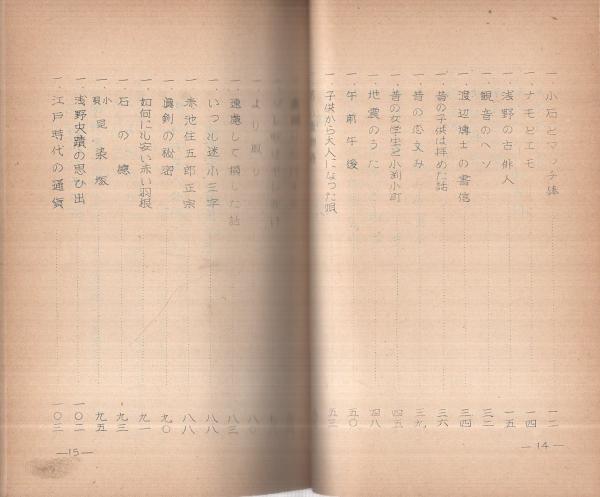 一、小石とマッチ棒 一二
一、ナモとエモ 一四
一、浅野の古俳人 一五
一、観音のヘソ 三二
一、渡辺博士の書信 三四
一、昔の子供は拝めた話 三六
一、昔の恋文み 三九
一、昔の女学生と小判小町 四五
一、地震のうた 四八
一、午前午後 五〇
一、子供から大人になった唄 五三
一、より取り 八〇
一、遠慮して損した話 八三
一、いつも迷小三字 八八
一、赤池住五郎正宗 八八
一、真剣の秘密 九〇
一、如何にも安い赤い羽根 九一
一、石の德 九三
一、小唄 昆染塚 九五
一、浅野史蹟の思ひ出 一〇二
一、江戸時代の通貨 一〇三
—14—
—15—